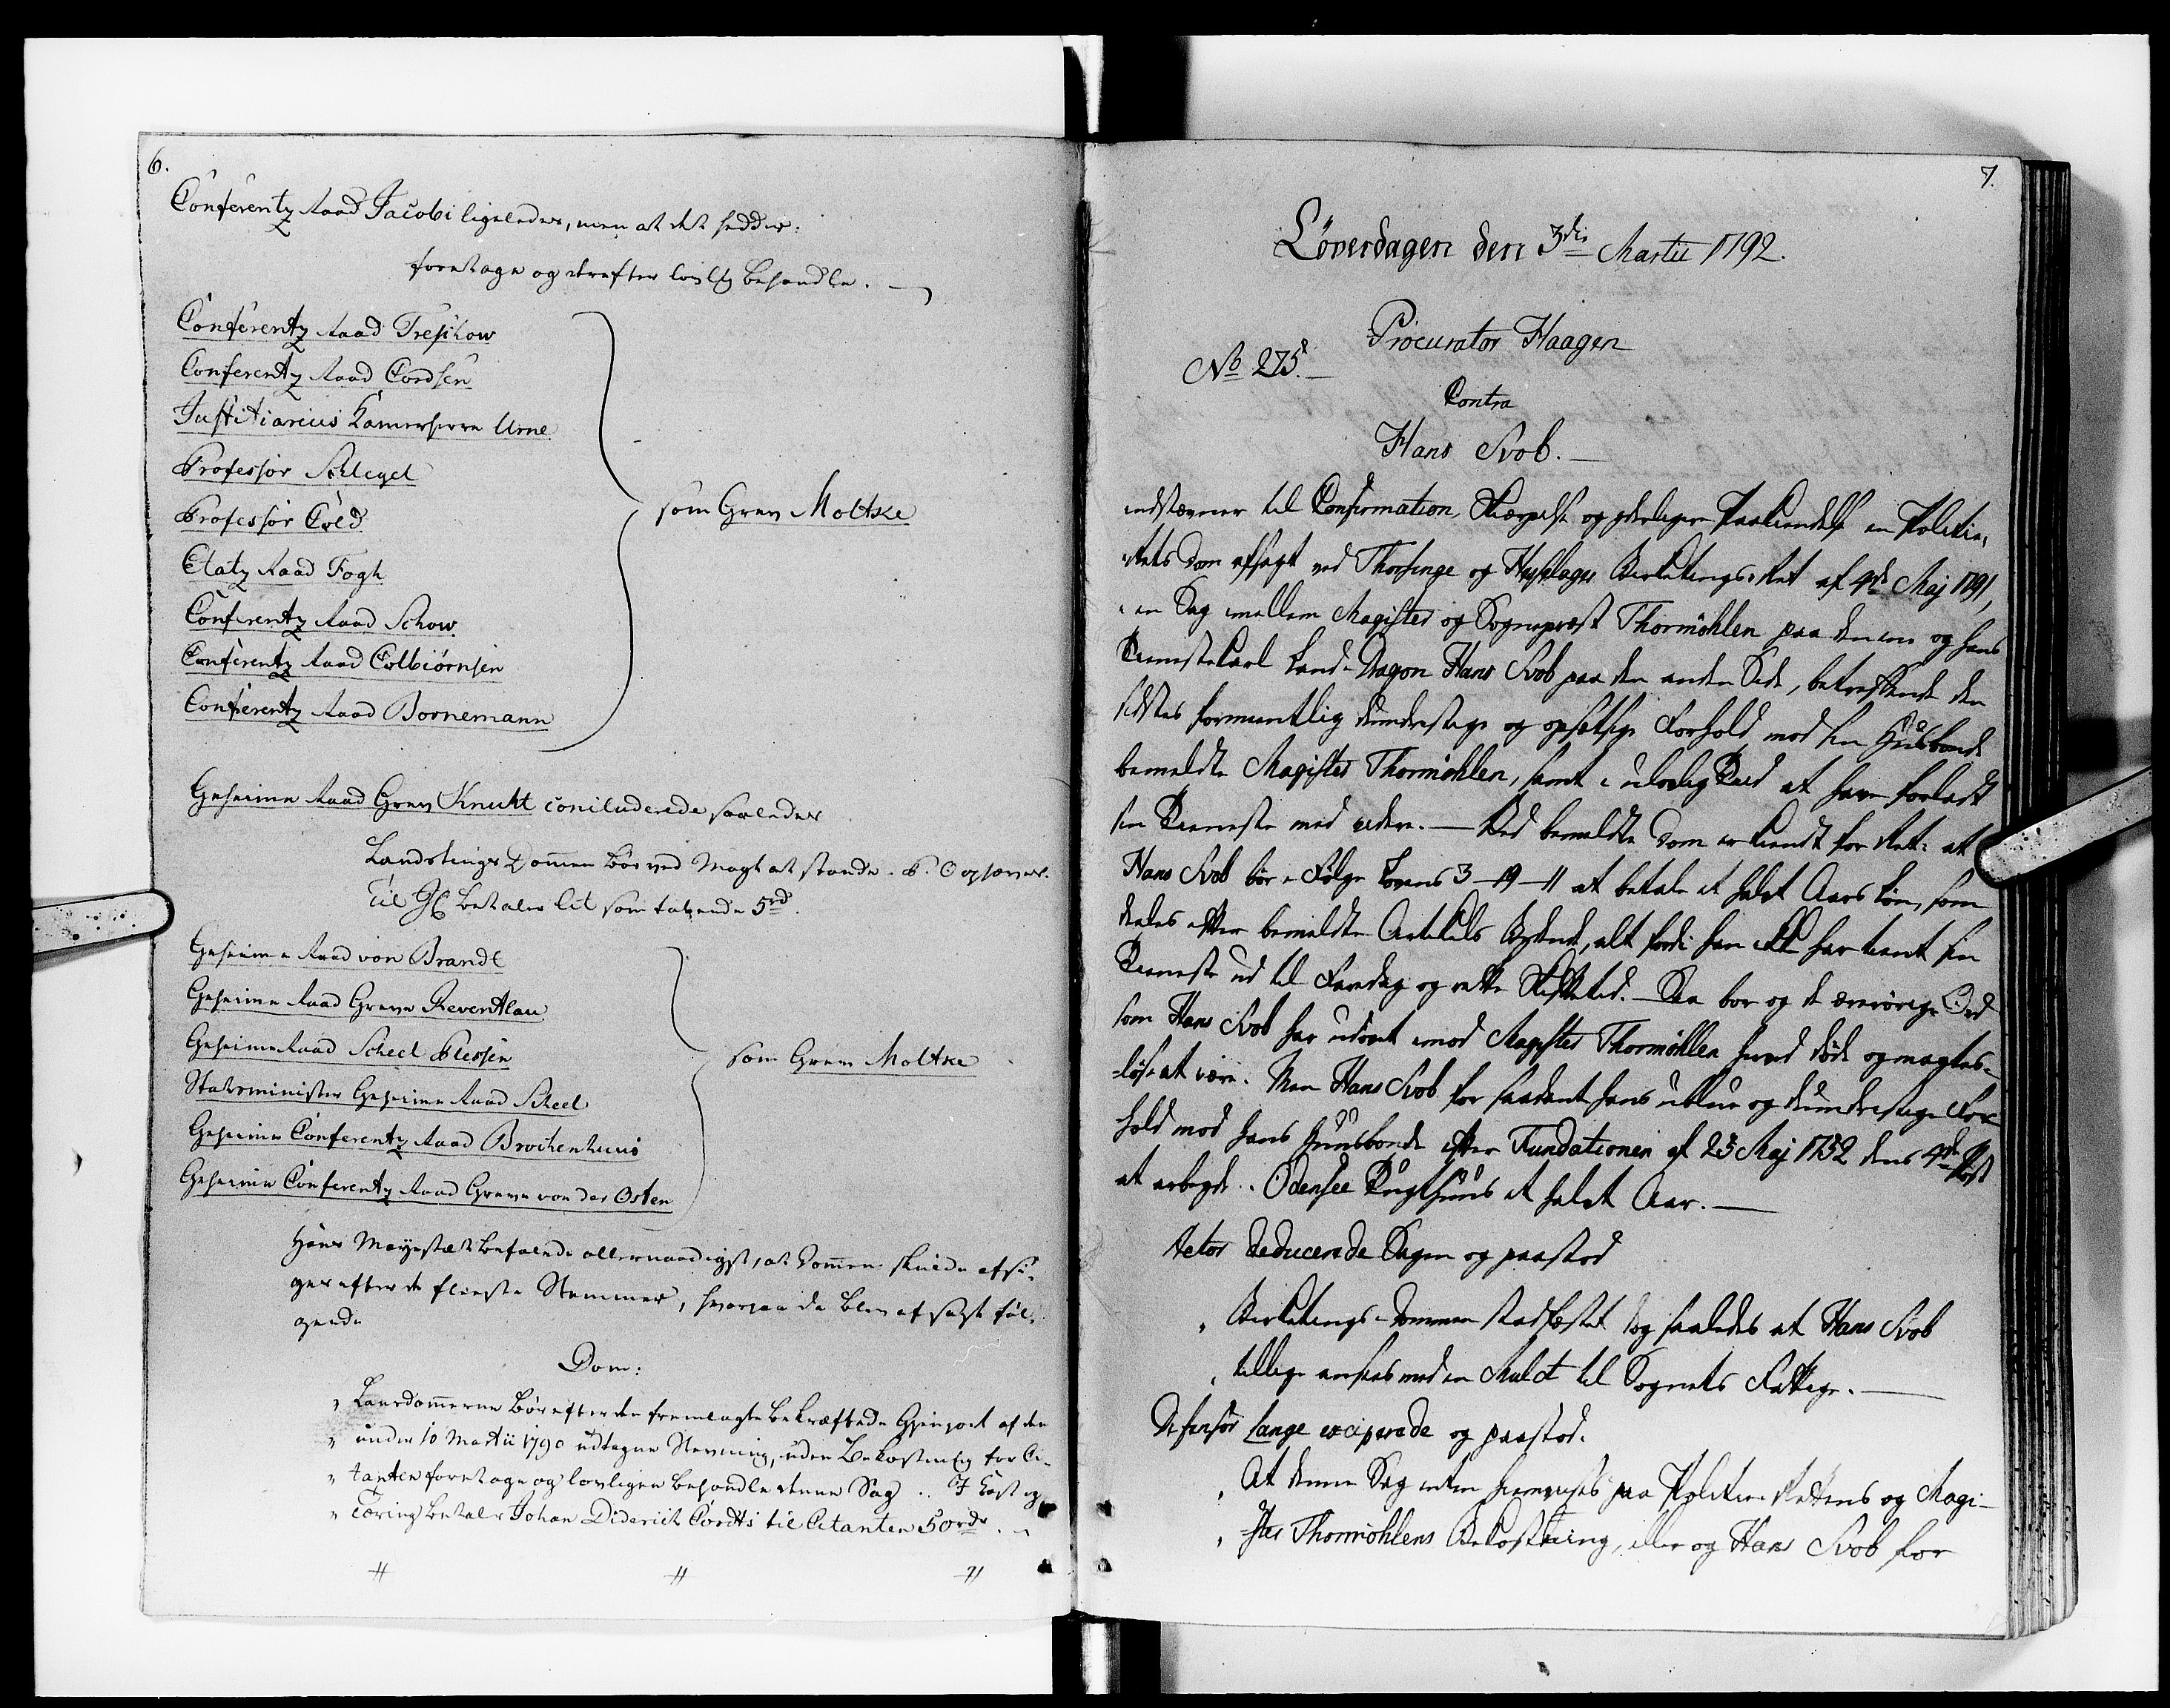 6.
Conferentz Raad Jacobi ligeledes, men at det hedder:
foretage og derefter lovlig behandle.
Conferentz Raad Treschow
Conferentz Raad Cordsen
Justitiarius Kammerherre Urne
Professor Schlegel
Professor Cold
Etatz Raad Fogh
Conferentz Raad Schow
Conferentz Raad Colbiörnsen
Conferentz Raad Bornemann
som Grev Moltke
Geheime Raad Grev Knuht concluderede saaledes
Landstings Dommen bør ved Magt at stande.
Til betales lit som tabende 5rd.
Geheime Raad von Brandt
Geheime Raad Greve Reventlau
Geheime Raad Scheel Plessen
Statsminister Geheime Raad Scheel
Geheime Conferentz Raad Brockenhuus
Geheime Conferentz Raad Greve von der Osten
som Greve Moltke
Hans Mayestæt befalede allernaadigst, at Dommen skulde afsi-
ges efter de fleeste Stemmer, hvorpaa da blev afsagt föl-
gende
Dom:
" Landdommerne bör efter den fremlagte bekræftede Gienpart af den
" under 10 Martii 1790 udtagne Stevning, uden Bekostning for Ci-
" tanten foretage og lovligen behandle denne Sag. I Kost og
" Tæring betaler Johan Diderich Cordts til Citanten 50 rdr.
7.
Löverdagen den 3die Martii 1792.
Procurator Haagen
No 275.
Contra
Hans Svob.
indstævner til Confirmation, Skærpelse og yderligere Paakiendelse en Politie-
Rets Dom afsagt ved Thorseinge og Birketings Ret af 4de Maj 1791,
i en Sag imellem Magister og Sognepræst Thormöhlen paa den ene og hans
Tienestekarl Land-Dragon Hans Svob paa den anden Side, betreffende den
sidstes formeentlig studserstige og opsætsige Forhold mod sin Huusbonde
bemeldte Magister Thormöhlen, samt i ulovlig Tiid at have forladt
sin Tieneste med videre. — Ved bemeldte Dom er kiendt for Ret: at
Hans Svob bör i Fölge Lovens 3-19-11 at betale et halvt Aars Lön, som
deeles efter bemeldte Artikels Bydende, alt fordi han ikke har tient sin
Tieneste ud til Faredag og rette Skiftetid. — Saa bör og de ærerörige Ord
som Hans Svob har udöst imod Magister Thormöhlen herved döde og magtes-
löse at være. Men Hans Svob for saadant hans ublue og For-
hold mod hans Huusbonde efter Fundationen af 23 Maj 1752 dens 4de Post
at arbeyde i Odensee Tugthuus et halvt Aar. —
Actor deducerede Sagen og paastod
" Birketings-Dommen stadfæstet dog saaledes at Hans Svob
" tillige ansees med en Mulct til Sognets Fattige. —
Defensor Lange exciperede og paastod:
" At denne Sag enten hiemvises paa Politie-Rettens og Magi-
" ster Thormöhlens Bekostning, eller og Hans Svob for